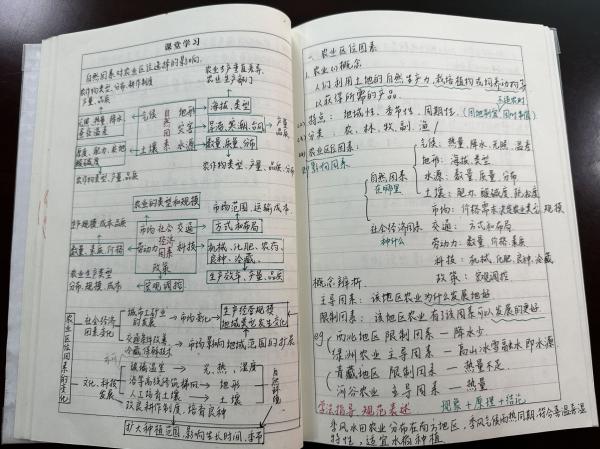 课堂学习
自然因素对农业区位选择的影响
农业生产垂直差异
农作物类型、分布、耕作制度
农业生产部门
产量、品质
光照 热量 降水
昼夜温差
气候
地形
海拔、类型
自然因素
灾害
旱涝、寒潮、台风
产量
品质
厚度、肥力、质地
酸碱度
土壤
水源
数量、质量、分布
农作物类型、产量、品质
农作物类型、产量、品质、分布
农业的类型和规模
市场范围、运输成本
生产规模、成本品质
市场
社会经济因素
交通
方式和布局
数量、素质、价格
劳动力
科技
机械、化肥、农药、
良种、冷藏
农业生产类型
政策
生产效率、产量、品质
分布、规模、成本
宏观调控
农业区位因素的变化
社会经济因素变化
城市工矿业的发展
市场变化
生产经营规模
地域类型发生变化
交通条件改善
冷藏保鲜技术
市场影响地域范围的扩展
文化、科技发展
玻璃温室 光、热、湿度
培养高线陡坡梯田 地形
人工培育土壤 土壤
改良耕作制度、培育良种
自然环境
扩大种植范围,影响生长时间、季节
一. 农业区位因素
1.农业的概念
人们利用土地的自然生产力,栽培植物或饲养动物等
以获得所需的产品
不违农时
(2) 特点: 地域性、季节性、周期性、(因地制宜 因时制宜)
(3) 分类: 农、林、牧、副、渔
农业区位因素
影响因素
自然因素
在哪里
气候: 热量、降水、光照、温差
地形: 海拔、类型
水源: 数量、质量、分布
土壤: 肥力、酸碱度
社会经济因素
种什么
市场: 价格需求决定农业类型、规模
交通: 方式和布局
劳动力: 数量、价格、素质
科技: 机械、化肥、良种、冷藏
政策: 宏观调控
概念辨析.
主导因素: 该地区农业为什么发展地好
限制因素: 该地区农业有了该因素可以发展的更好
eg
西北地区 限制因素 — 降水少
绿洲农业 主导因素 — 高山冰雪融水即水源
青藏地区 限制因素 — 热量不足
河谷农业 主导因素 — 热量
学法指导 规范表述
现象+原理+结论
季风水田农业分布在南方地区,季风气候雨热同期,符合喜温喜湿
特性,适宜水稻种植